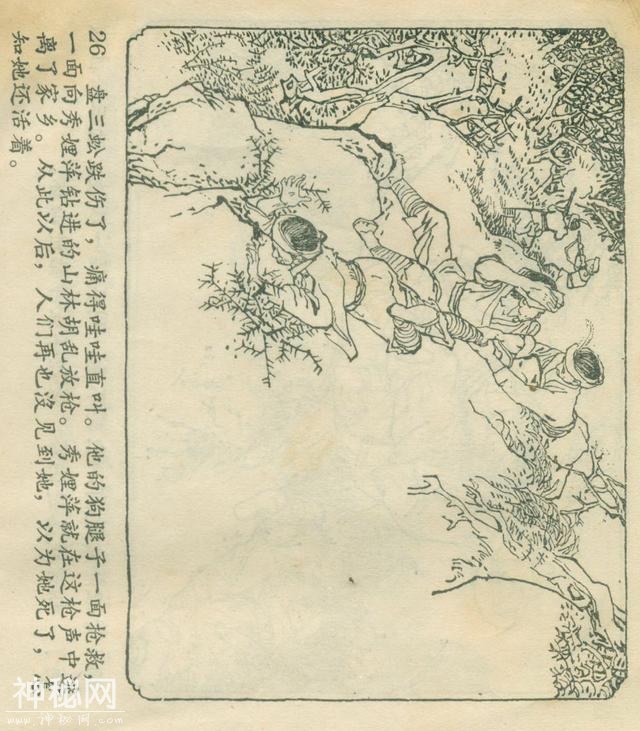 26 盘三蚣跌伤了，痛得哇哇直叫。他的狗腿子一面抢救，
一面向秀娌萍钻进的山林胡乱放枪。秀娌萍就在这枪声中
离了家乡。从此以后，人们再也沒见到她，以为她死了，
知她还活着。
神秘网
www.神秘网.com